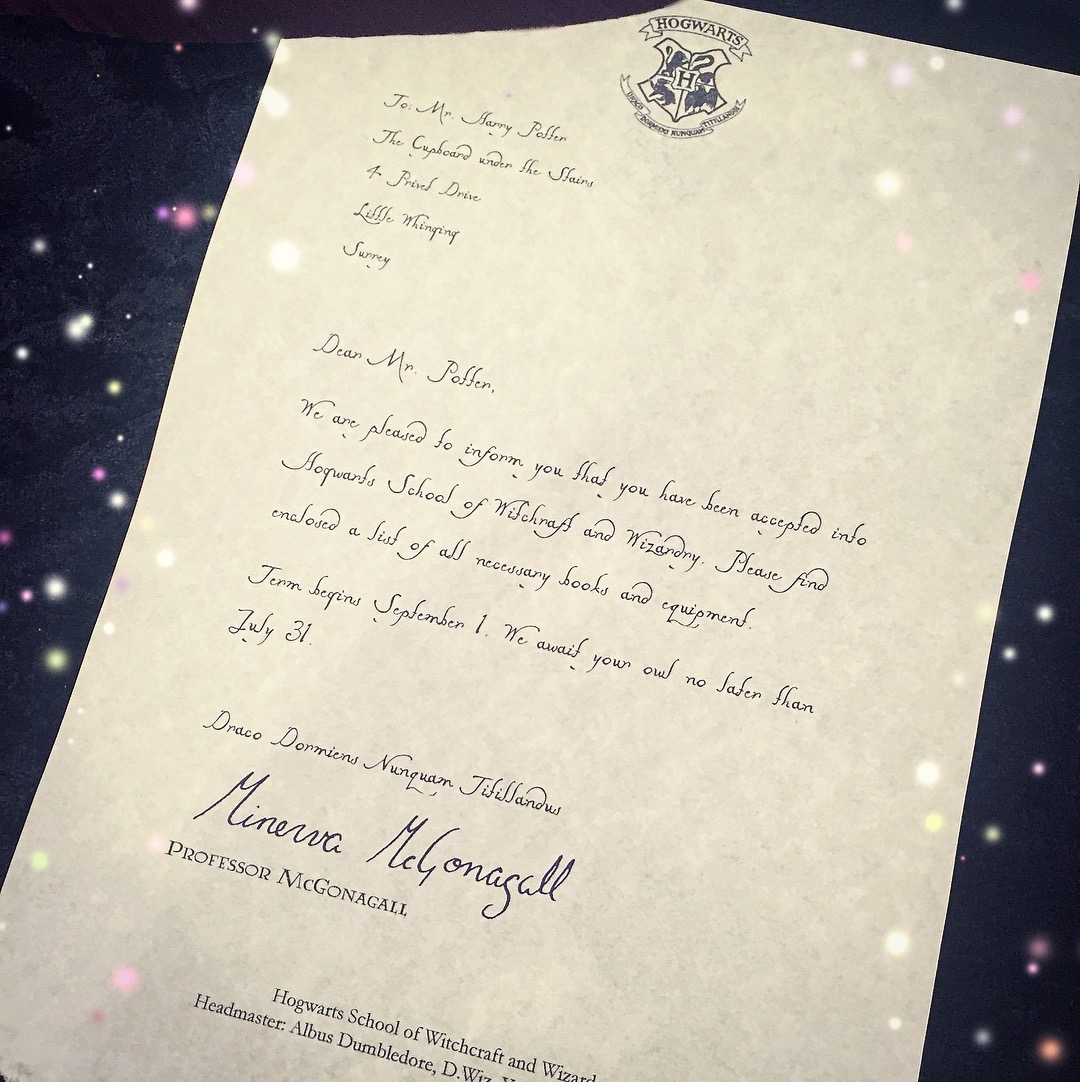 HOGWARTS
H
DRACO DORMIENS NUNQUAM TITILLANDUS
To: Mr. Harry Potter
The Cupboard under the Stairs
4 Privet Drive
Little Whinging
Surrey
Dear Mr. Potter,
We are pleased to inform you that you have been accepted into
Hogwarts School of Witchcraft and Wizardry. Please find
enclosed a list of all necessary books and equipment.
Term begins September 1. We await your owl no later than
July 31.
Draco Dormiens Nunquam Titillandus
Minerva McGonagall
PROFESSOR MCGONAGALL
Hogwarts School of Witchcraft and Wizard
Headmaster: Albus Dumbledore, D.Wiz.